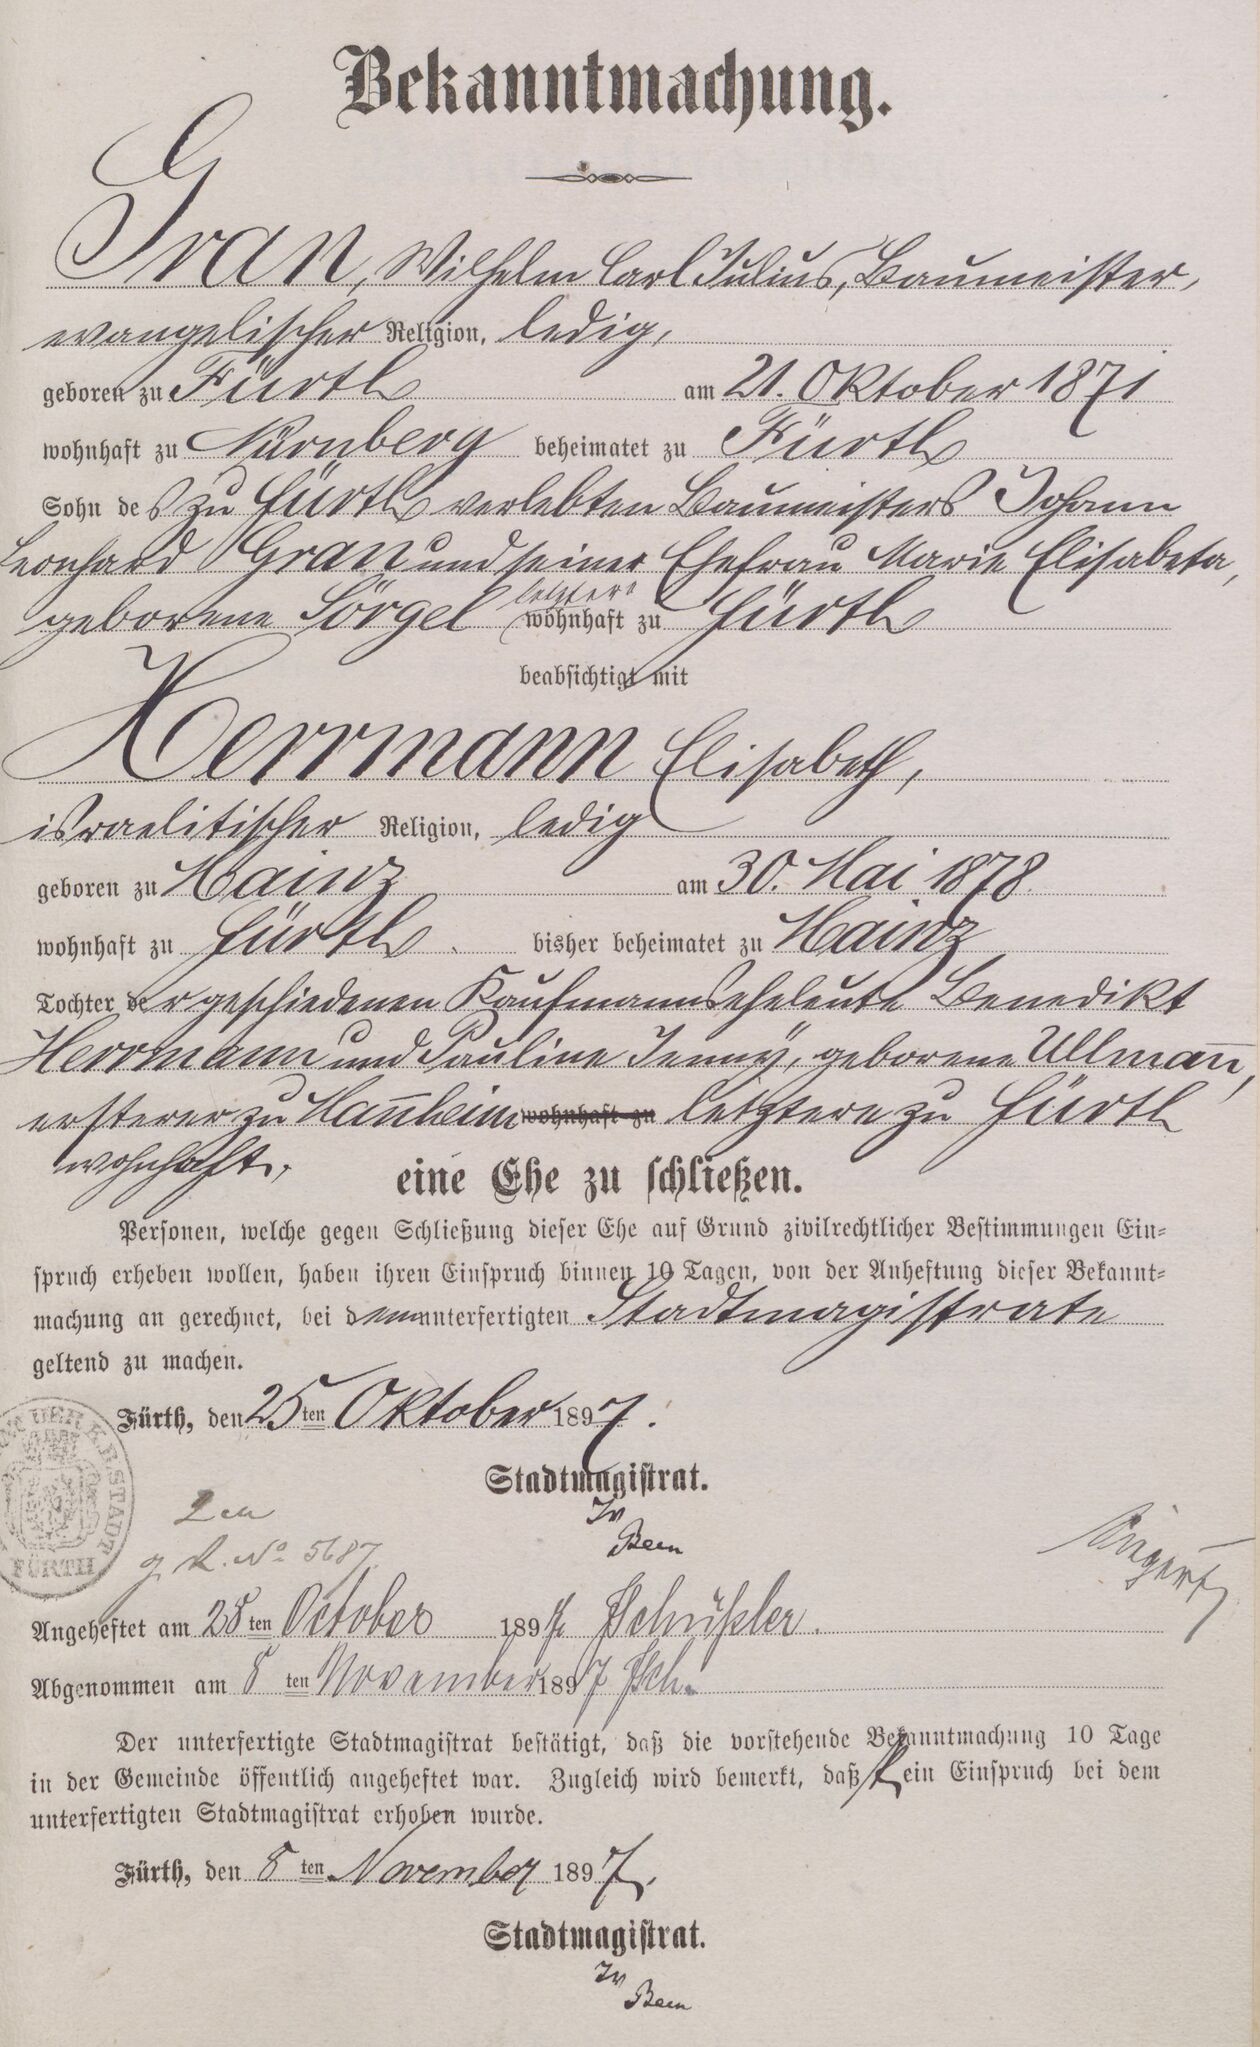 Bekanntmachung.
Gran, Wilhelm Carl Julius, Baumeister,
evangelischer Religion, ledig,
geboren zu Fürth am 21. Oktober 1871
wohnhaft zu Nürnberg beheimatet zu Fürth
Sohn des zu Fürth verlebten Baumeisters Johann
Leonhard Gran und seiner Ehefrau Marie Elisabeta,
letztere
geborene Sörgel wohnhaft zu Fürth
beabsichtigt mit
Herrmann Elisabeth,
israelitischer Religion, ledig
geboren zu Mainz am 30. Mai 1878
wohnhaft zu Fürth. bisher beheimatet zu Mainz
Tochter der geschiedenen Kaufmannseheleute Benedikt
Herrmann und Pauline Jenny, geborene Ullmañ,
ersterer zu Mañheim wohnhaft zu letztere zu Fürth
wohnhaft,
eine Ehe zu schließen.
Personen, welche gegen Schließung dieser Ehe auf Grund zivilrechtlicher Bestimmungen Ein-
spruch erheben wollen, haben ihren Einspruch binnen 10 Tagen, von der Anheftung dieser Bekannt-
machung an gerechnet, bei dem unterfertigten Stadtmagistrate
geltend zu machen.
Fürth, den 25ten Oktober 1897.
Stadtmagistrat.
STADT
FÜRTH
No 5687
Angeheftet am 28ten October 1897. Schüßler.
Abgenommen am 8ten November 1897 Sch.
Der unterfertigte Stadtmagistrat bestätigt, daß die vorstehende Bekanntmachung 10 Tage
in der Gemeinde öffentlich angeheftet war. Zugleich wird bemerkt, daß kein Einspruch bei dem
unterfertigten Stadtmagistrat erhoben wurde.
Fürth, den 8ten November 1897.
Stadtmagistrat.